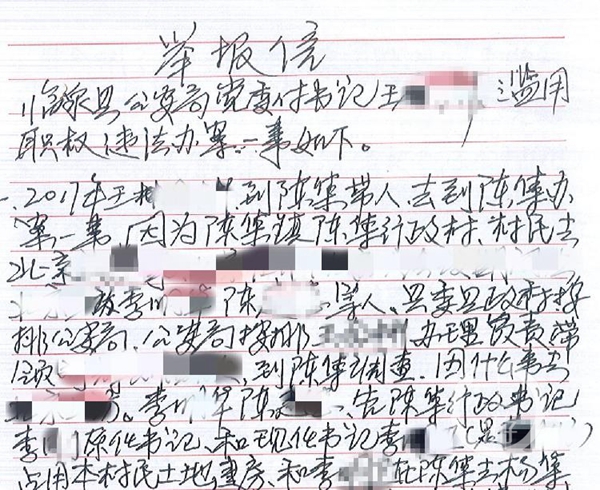 举报信
临泉县公安局党委付书记王 滥用
职权违法办案一事如下。
一.2017年王 到陈集带人去到陈集办
案一事,因为陈集镇陈集行政村、村民去
北京
李 陈 等人、县委县政府安
排公安局、公安局安排 办理负责带
领 到陈集调查、因什么事去
李 华陈 、告陈集行政书记
李 原任书记、和现任书记李 是
占用本村民土地盖房、和李 在陈集去杨集